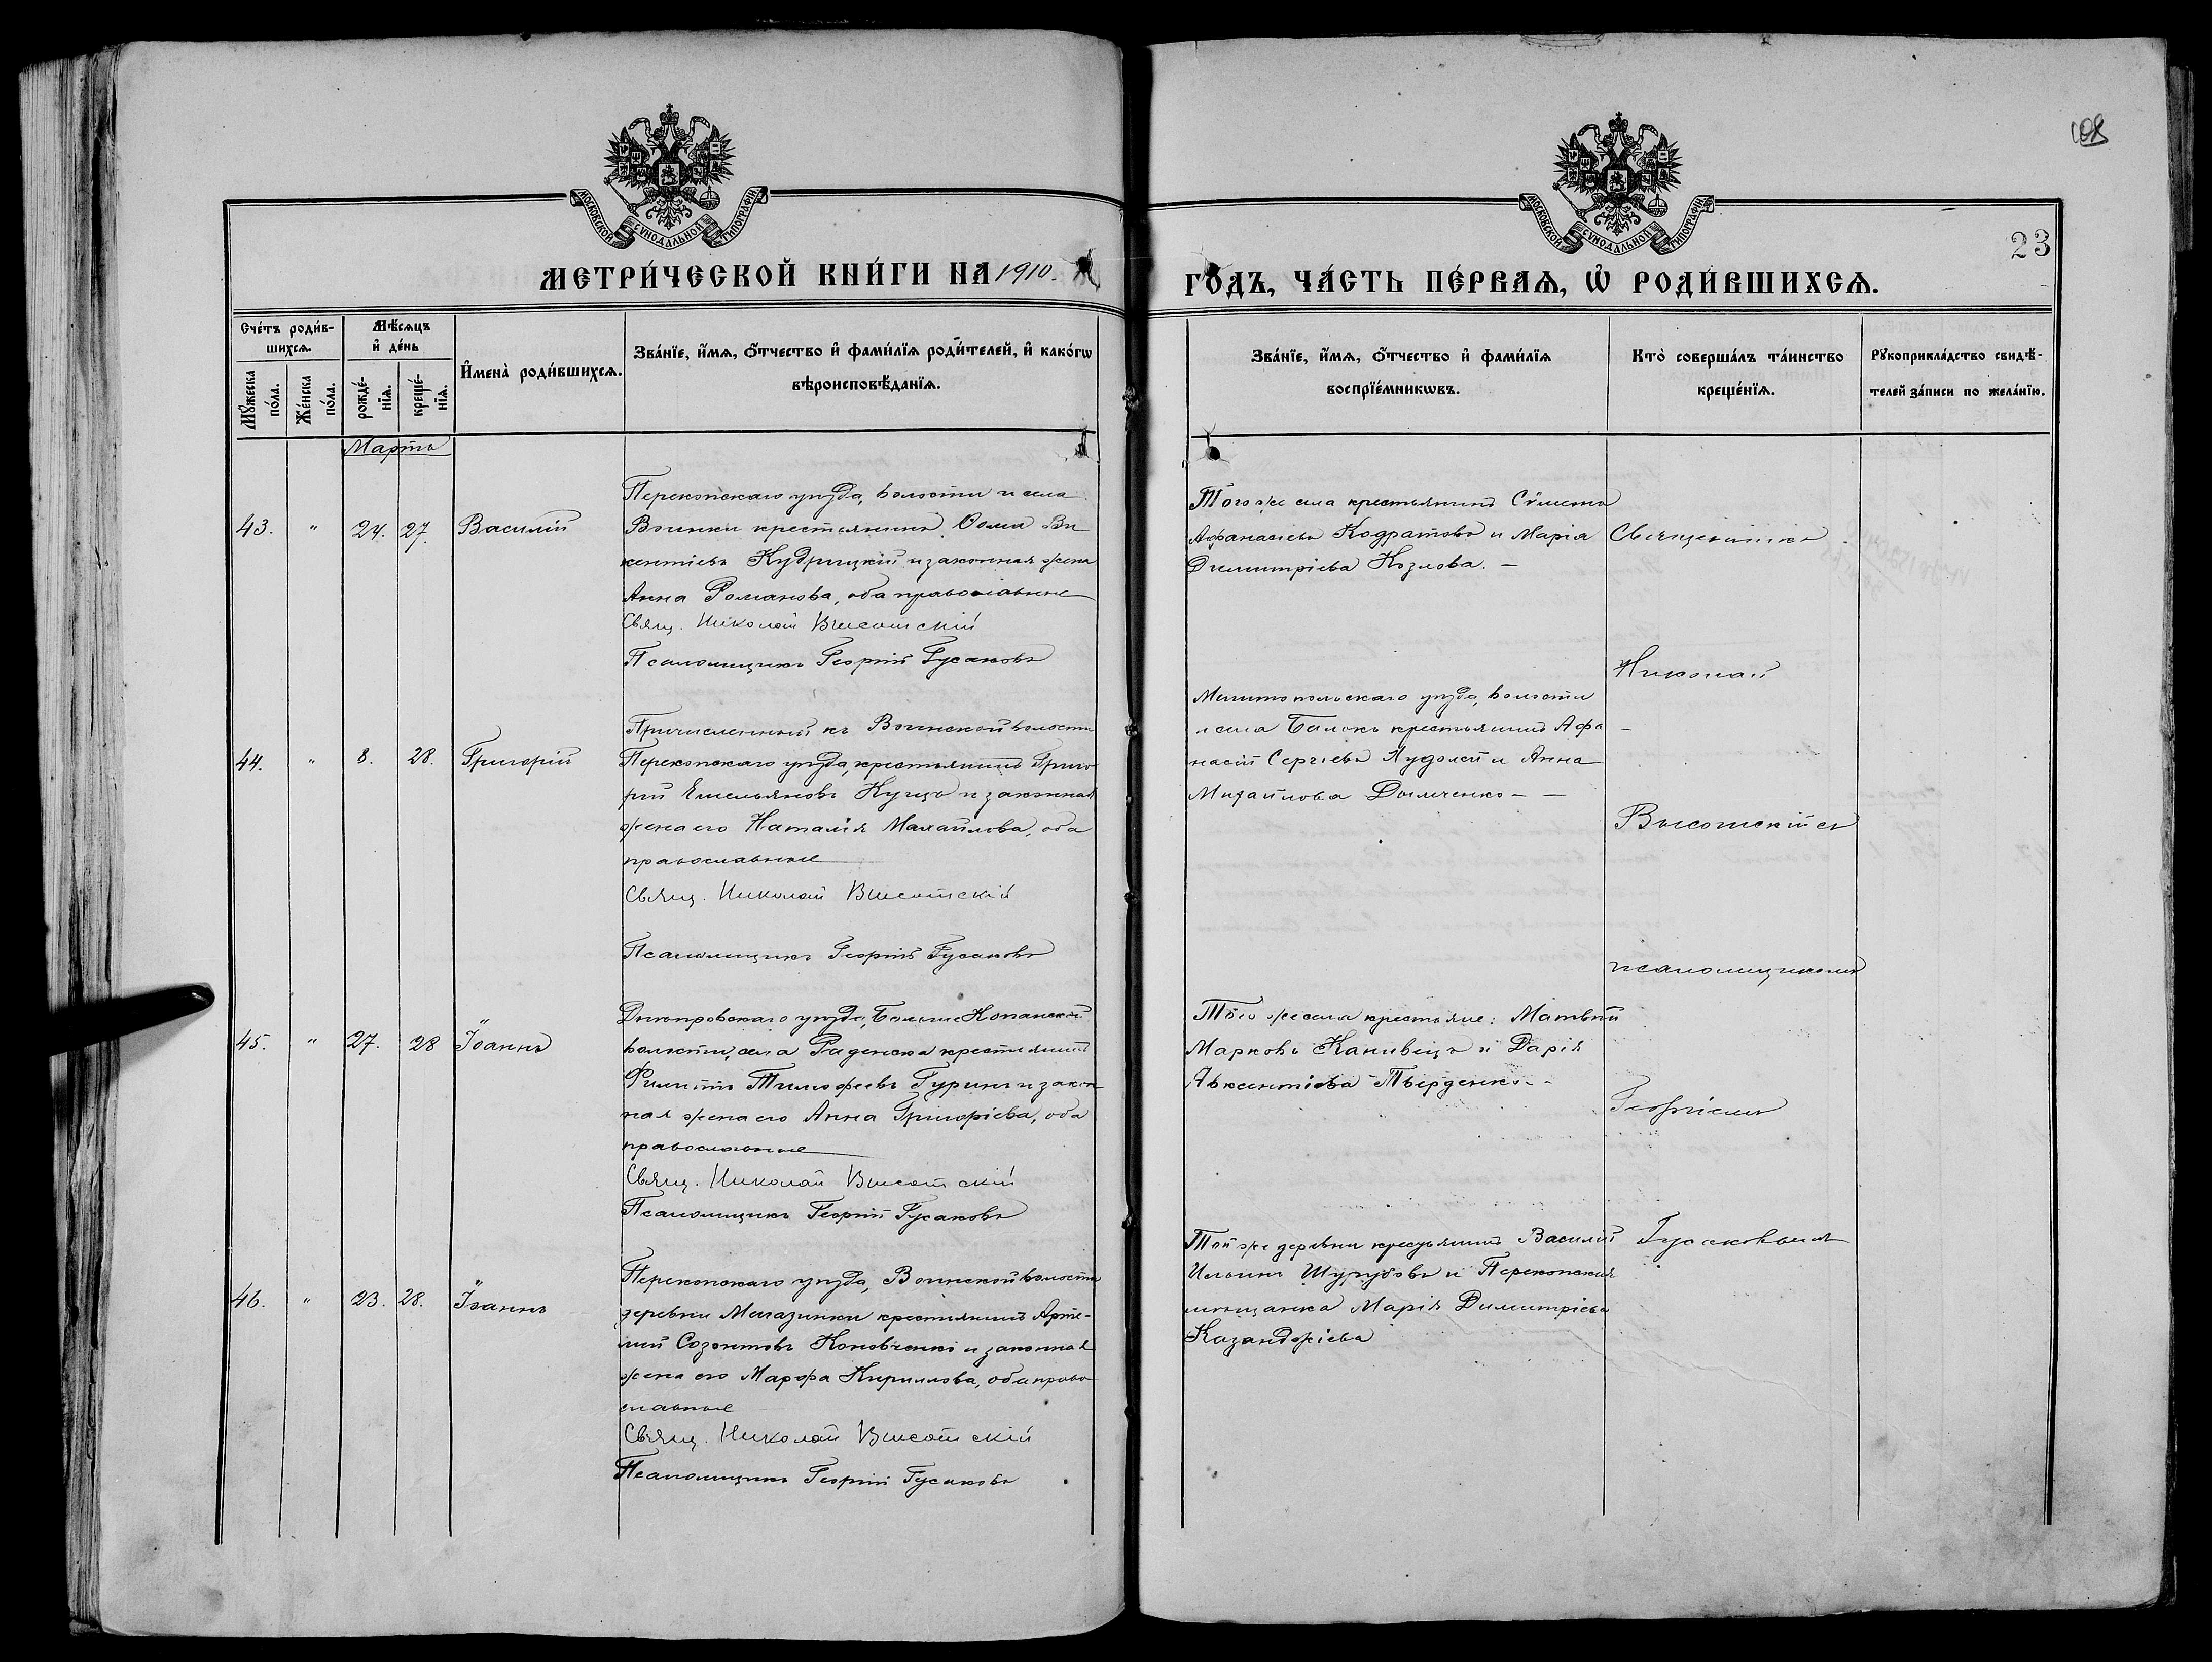 108
МОСКОВСКОЙ СѴНОДАЛЬНОЙ ТИПОГРАФІИ
МОСКОВСКОЙ СѴНОДАЛЬНОЙ ТИПОГРАФІИ
23
МЕТРИ́ЧЕСКОЙ КНИ́ГИ НА 1910.
ГО́ДЪ, ЧА́СТЬ ПЕ́РВАѦ, Ѡ҆ РОДИ́ВШИХСѦ.
Сче́тъ роди́в-
шихсѧ.
Мꙋ́жеска по́ла.
Же́нска по́ла.
Мѣ́сѧцъ
и҆ де́нь
рожде́-
нїѧ.
креще́-
нїѧ.
И҆мена̀ роди́вшихсѧ.
Зва́нїе, и҆́мѧ, ѻ҆́тчество и҆ фами́лїѧ роди́телей, и҆ како́гѡ
вѣроисповѣ́данїѧ.
Зва́нїе, и҆́мѧ, ѻ҆́тчество и҆ фами́лїѧ
воспрїе́мникѡвъ.
Кто̀ соверша́лъ та́инство
креще́нїѧ.
Рꙋкоприкла́дство свидѣ́-
телей за́писи по жела́нїю.
Мартъ
43. " 24. 27. Василій
Перекопскаго уѣзда, волости и села
Воинки крестьянинъ Ѳома Ви
кентіевъ Кудрицкій и законная жена
Анна Романова, оба православные
Свящ. Николай Высотскій
Псаломщикъ Георгій Гусаковъ
Того же села крестьянинъ Сѵмеонъ
Афанасіевъ Кодратовъ и Марія
Димитріева Козлова. —
44. " 8. 28. Григорій
Причисленный къ Воинской волости
Перекопскаго уѣзда, крестьянинъ Григо
рій Емельяновъ Куцъ и законная
жена его Наталія Михайлова, оба
православные
Свящ. Николай Высотскій
Псаломщикъ Георгій Гусаковъ
Мелитопольскаго уѣзда, волости
и села Балокъ крестьянинъ Афа
насій Сергіевъ Худолей и Анна
Михайлова Дымченко — —
45. " 27. 28 Іоаннъ
Днѣпровскаго уѣзда, Больше Копанской
волости, села Раденска крестьянинъ
Филиппъ Тимофеевъ Гуринъ и закон
ная жена его Анна Григоріева, оба
православные
Свящ. Николай Высотскій
Псаломщикъ Георгій Гусаковъ
Того же села крестьяне: Матвѣй
Марковъ Канивецъ и Дарія
Авксентіева Тверденко. -
46. " 23. 28. Іоаннъ
Перекопскаго уѣзда, Воинской волости
деревни Магазинки крестьянинъ Арте-
мій Созонтовъ Коновченко и законная
жена его Марфа Кириллова, оба право
славные
Свящ. Николай Высотскій
Псаломщикъ Георгій Гусаковъ
Той же деревни крестьянинъ Василій
Ильинъ Шурубовъ и Перекопская
мѣщанка Марія Димитріева
Казанджіева
Священникъ
Николай
Высотскій съ
псаломщикомъ
Георгіемъ
Гусаковымъ